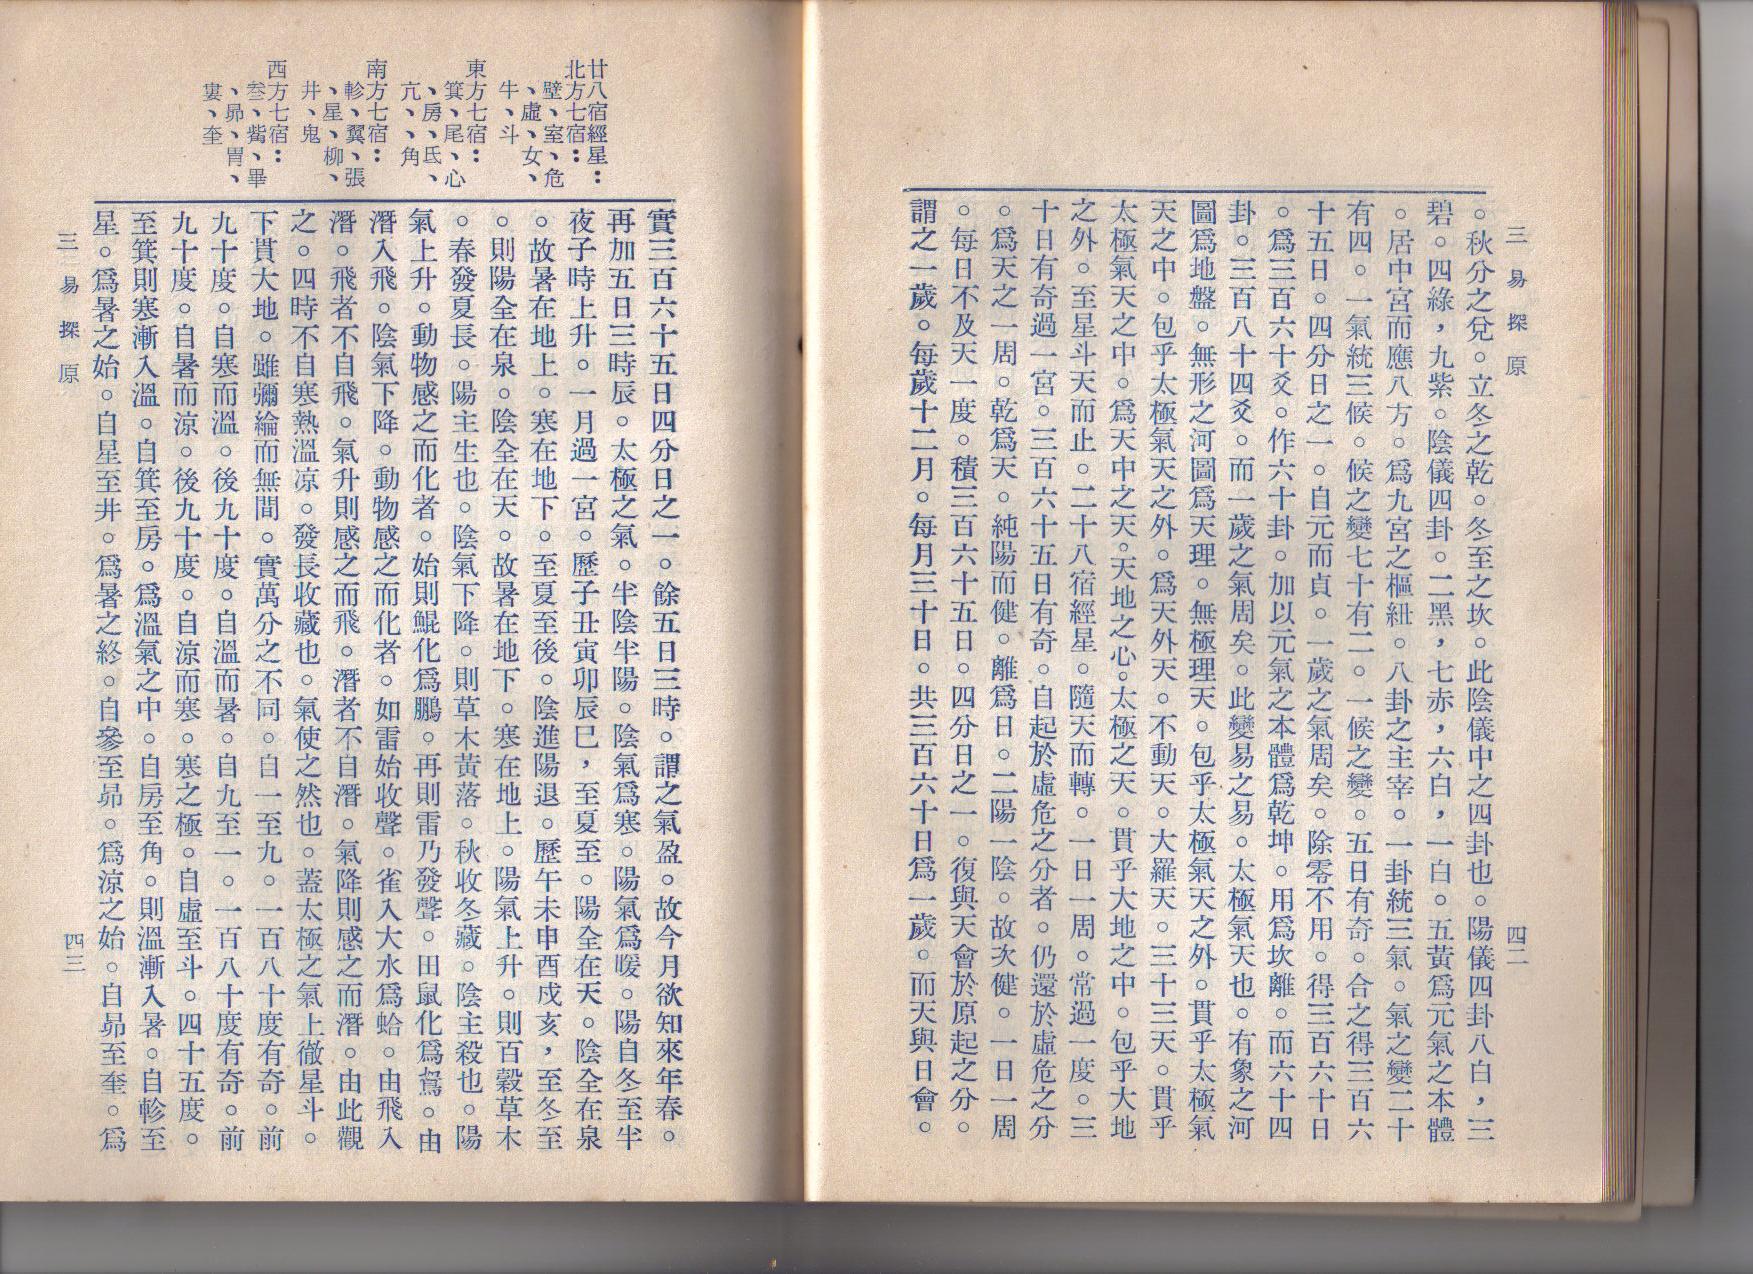 三易探原
四二
。秋分之兌。立冬之乾。冬至之坎。此陰儀中之四卦也。陽儀四卦八白，三
碧。四綠，九紫。陰儀四卦。二黑，七赤，六白，一白。五黃爲元氣之本體
。居中宮而應八方。爲九宮之樞紐。八卦之主宰。一卦統三氣。氣之變二十
有四。一氣統三候。候之變七十有二。一候之變。五日有奇。合之得三百六
十五日。四分日之一。自元而貞。一歲之氣周矣。除零不用。得三百六十日
。爲三百六十爻。作六十卦。加以元氣之本體爲乾坤。用爲坎離。而六十四
卦。三百八十四爻。而一歲之氣周矣。此變易之易。太極氣天也。有象之河
圖爲地盤。無形之河圖爲天理。無極理天。包乎太極氣天之外。貫乎太極氣
天之中。包乎太極氣天之外。爲天外天。不動天。大羅天。三十三天。貫乎
太極氣天之中。爲天中之天。天地之心。太極之天。貫乎大地之中。包乎大地
之外。至星斗天而止。二十八宿經星。隨天而轉。一日一周。常過一度。三
十日有奇過一宮。三百六十五日有奇。自起於虛危之分者。仍還於虛危之分
。爲天之一周。乾爲天。純陽而健。離爲日。二陽一陰。故次健。一日一周
。每日不及天一度。積三百六十五日。四分日之一。復與天會於原起之分。
謂之一歲。每歲十二月。每月三十日。共三百六十日爲一歲。而天與日會。
廿八宿經星：
北方七宿：
壁、室、危
、虛、女、
牛、斗
東方七宿：
箕、尾、心
、房、氐、
亢、、角
南方七宿：
軫、翼、張
、星、柳、
井、鬼
西方七宿：
叁、觜、畢
、昴、胃、
婁、奎
實三百六十五日四分日之一。餘五日三時。謂之氣盈。故今月欲知來年春。
再加五日三時辰。太極之氣。半陰半陽。陰氣爲寒。陽氣爲暖。陽自冬至半
夜子時上升。一月過一宮。歷子丑寅卯辰巳，至夏至。陽全在天。陰全在泉
。故暑在地上。寒在地下。至夏至後。陰進陽退。歷午未申酉戍亥，至冬至
。則陽全在泉。陰全在天。故暑在地下。寒在地上。陽氣上升。則百穀草木
。春發夏長。陽主生也。陰氣下降。則草木黃落。秋收冬藏。陰主殺也。陽
氣上升。動物感之而化者。始則鯤化爲鵬。再則雷乃發聲。田鼠化爲鴽。由
潛入飛。陰氣下降。動物感之而化者。如雷始收聲。雀入大水爲蛤。由飛入
潛。飛者不自飛。氣升則感之而飛。潛者不自潛。氣降則感之而潛。由此觀
之。四時不自寒熱溫凉。發長收藏也。氣使之然也。蓋太極之氣上徹星斗。
下貫大地。雖彌綸而無間。實萬分之不同。自一至九。一百八十度有奇。前
九十度。自寒而溫。後九十度。自溫而暑。自九至一。一百八十度有奇。前
九十度。自暑而涼。後九十度。自涼而寒。寒之極。自虛至斗。四十五度。
至箕則寒漸入溫。自箕至房。爲溫氣之中。自房至角。則溫漸入暑。自軫至
星。爲暑之始。自星至井。爲暑之終。自參至昴。爲涼之始。自昴至奎。爲
三易探原
四三